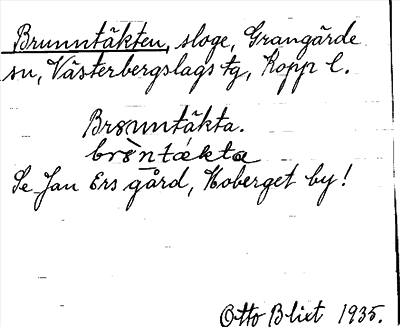 Brunntäkten, sloge, Grangärde
sn, Västerbergslags tg, Kopp l.
Brønntäkta.
brø̀ntákta
Se Jan Ers gård, Moberget by!
Otto Blixt 1935.